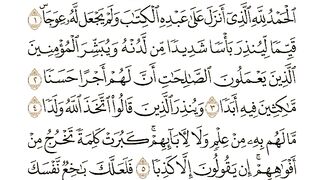 الْحَمْدُ لِلَّهِ الَّذِي أَنزَلَ عَلَىٰ عَبْدِهِ الْكِتَابَ وَلَمْ يَجْعَل لَّهُ عِوَجًا ۜ ١
قَيِّمًا لِّيُنذِرَ بَأْسًا شَدِيدًا مِّن لَّدُنْهُ وَيُبَشِّرَ الْمُؤْمِنِينَ
الَّذِينَ يَعْمَلُونَ الصَّالِحَاتِ أَنَّ لَهُمْ أَجْرًا حَسَنًا
٢ مَّاكِثِينَ فِيهِ أَبَدًا ٣ وَيُنذِرَ الَّذِينَ قَالُوا اتَّخَذَ اللَّهُ وَلَدًا ٤
مَّا لَهُم بِهِ مِنْ عِلْمٍ وَلَا لِآبَائِهِمْ ۚ كَبُرَتْ كَلِمَةً تَخْرُجُ مِنْ
أَفْوَاهِهِمْ ۚ إِن يَقُولُونَ إِلَّا كَذِبًا ٥ فَلَعَلَّكَ بَاخِعٌ نَّفْسَكَ